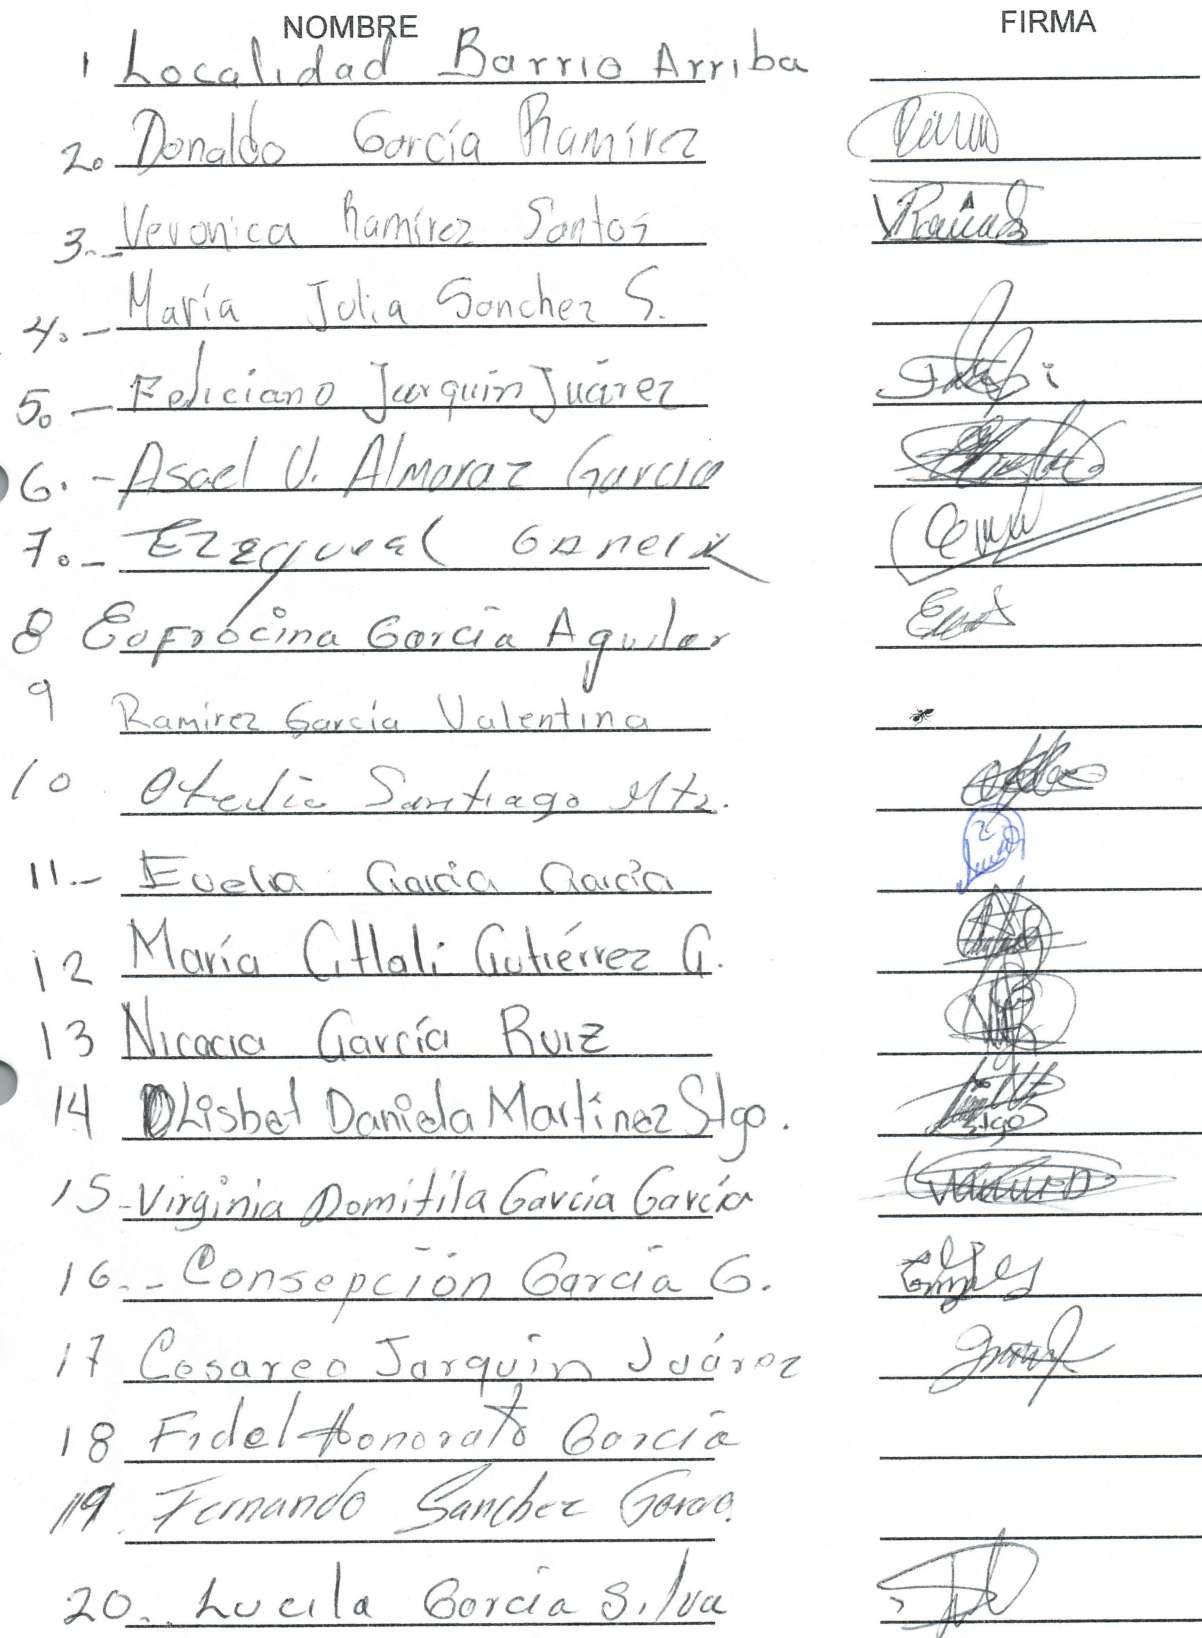 NOMBRE FIRMA
1 Localidad Barrio Arriba
2. Donaldo García Ramírez
3.- Veronica Ramírez Santos
4.- María Julia Sanchez S.
5.- Feliciano Jarquin Juárez
6.- Asael U. Almaraz Garcia
7.- Ezequiel Garcia
8 Eofrocina Garcia Aguilar
9 Ramirez Garcia Valentina
10 Otelia Santiago Mtz.
11.- Evelia Garcia Garcia
12 María Citlali Gutiérrez G.
13 Nicacia García Ruiz
14 Lisbet Daniela Martínez Stgo.
15-Virginia Domitila García García
16.- Consepción Garcia G.
17 Cesareo Jarquin Juárez
18 Fidel Honorato Garcia
19 Fernando Sanchez
20.. Lucila Garcia Silva